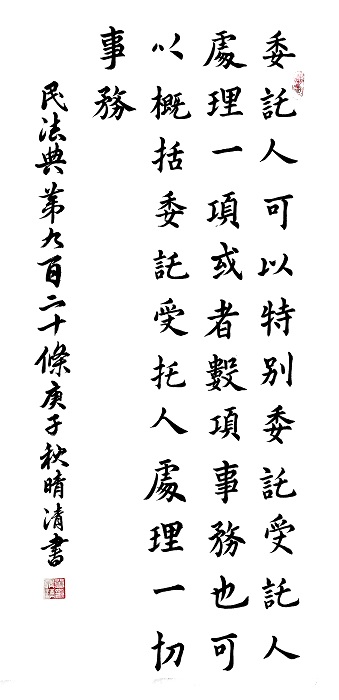 委託人可以特別委託受託人
處理一項或者數項事務也可
以概括委託受托人處理一切
事務
民法典第九百二十條庚子秋晴清書